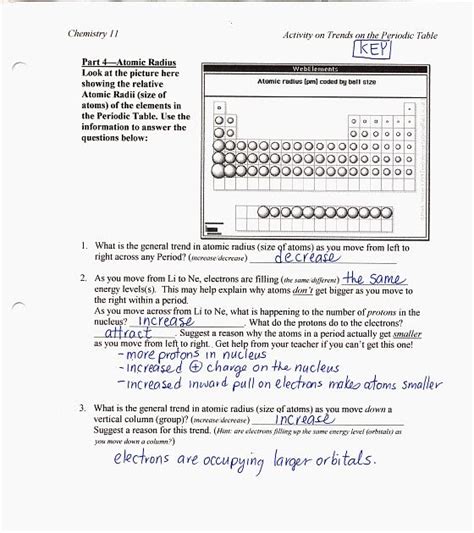 Chemistry 11 Activity on Trends on the Periodic Table
KEY
Part 4—Atomic Radius
Look at the picture here
showing the relative
Atomic Radii (size of
atoms) of the elements in
the Periodic Table. Use the
information to answer the
questions below:
WebElements
Atomic radius (pm) coded by ball size
1. What is the general trend in atomic radius (size of atoms) as you move from left to
right across any Period? (increase/decrease) decrease
2. As you move from Li to Ne, electrons are filling (the same/different) the same
energy levels(s). This may help explain why atoms don't get bigger as you move to
the right within a period.
As you move across from Li to Ne, what is happening to the number of protons in the
nucleus? increase. What do the protons do to the electrons?
attract. Suggest a reason why the atoms in a period actually get smaller
as you move from left to right. Get help from your teacher if you can't get this one!
- more protons in nucleus
- increased ⊕ charge on the nucleus
- increased inward pull on electrons makes atoms smaller
3. What is the general trend in atomic radius (size of atoms) as you move down a
vertical column (group)? (increase/decrease) increase
Suggest a reason for this trend. (Hint: are electrons filling up the same energy level (orbitals) as
you move down a column?)
electrons are occupying larger orbitals.